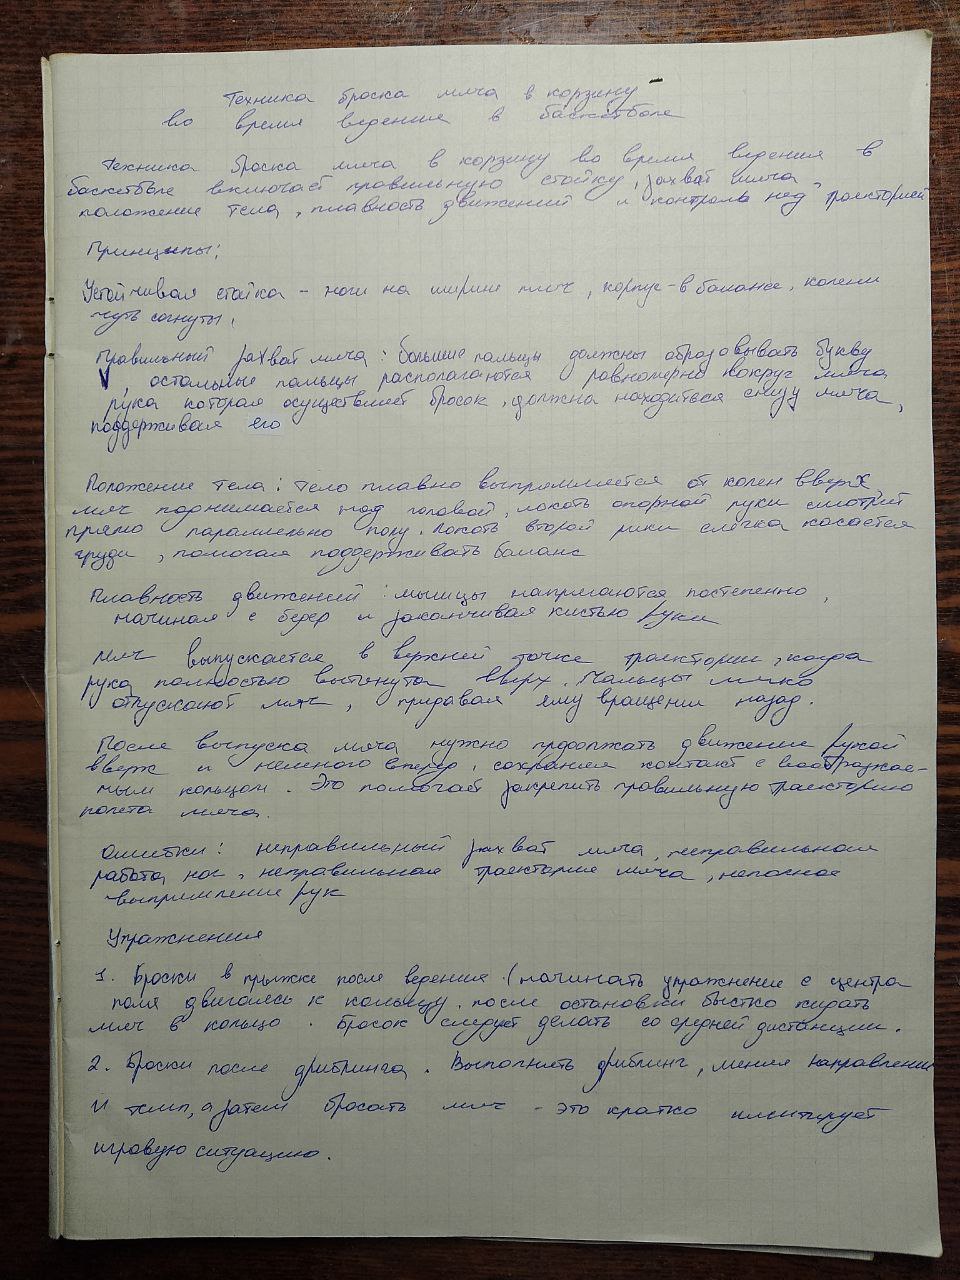 Техника броска мяча в корзину
во время ведения в баскетболе
Техника броска мяча в корзину во время ведения в
баскетболе включает правильную стойку, захват мяча
положение тела, плавность движений и контроль над траекторией
Принципы:
Устойчивая стойка - ноги на ширине плеч, корпус - в балансе, колени
чуть согнуты.
Правильный захват мяча: большие пальцы должны образовывать букву
V, остальные пальцы располагаются равномерно вокруг мяча
рука которая осуществляет бросок, должна находиться снизу мяча,
поддерживая его
Положение тела: тело плавно выпрямляется от колен вверх,
мяч поднимается над головой, локоть опорной руки смотрит
прямо параллельно полу. Локоть второй руки слегка касается
груди, помогая поддерживать баланс
Плавность движений: мышцы напрягаются постепенно,
начиная с бедер и заканчивая кистью руки
Мяч выпускается в верхней точке траектории, когда
рука полностью вытянута вверх. Пальцы мягко
отпускают мяч, придавая ему вращение назад.
После выпуска мяча нужно продолжать движение рукой
вверх и немного вперед, сохраняя контакт с воображае-
мым кольцом. Это помогает закрепить правильную траекторию
полета мяча.
Ошибки: неправильный захват мяча, неправильная
работа ног, неправильная траектория мяча, неполное
выпрямление рук
Упражнения
1. Броски в прыжке после ведения (начинать упражнение с центра
поля двигаясь к кольцу, после остановки быстко кидать
мяч в кольцо. Бросок следует делать со средней дистанции.
2. Броски после дриблинга. Выполнять дриблинг, меняя направление
и темп, а затем бросать мяч - это кратко имитирует
игровую ситуацию.